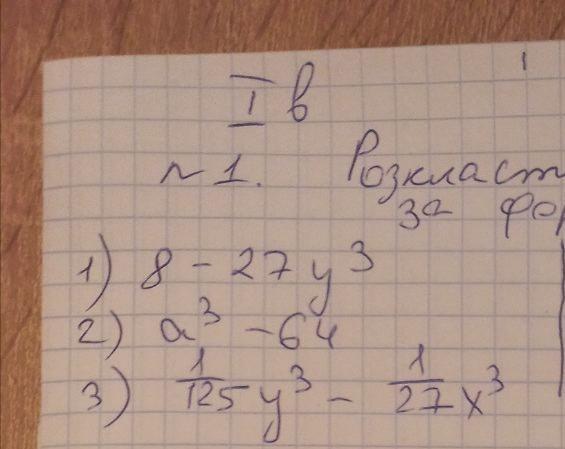 I в
№1. Розкласт
за фор
1) 8 - 27y³
2) a³ - 64
3) 1/125 y³ - 1/27 x³